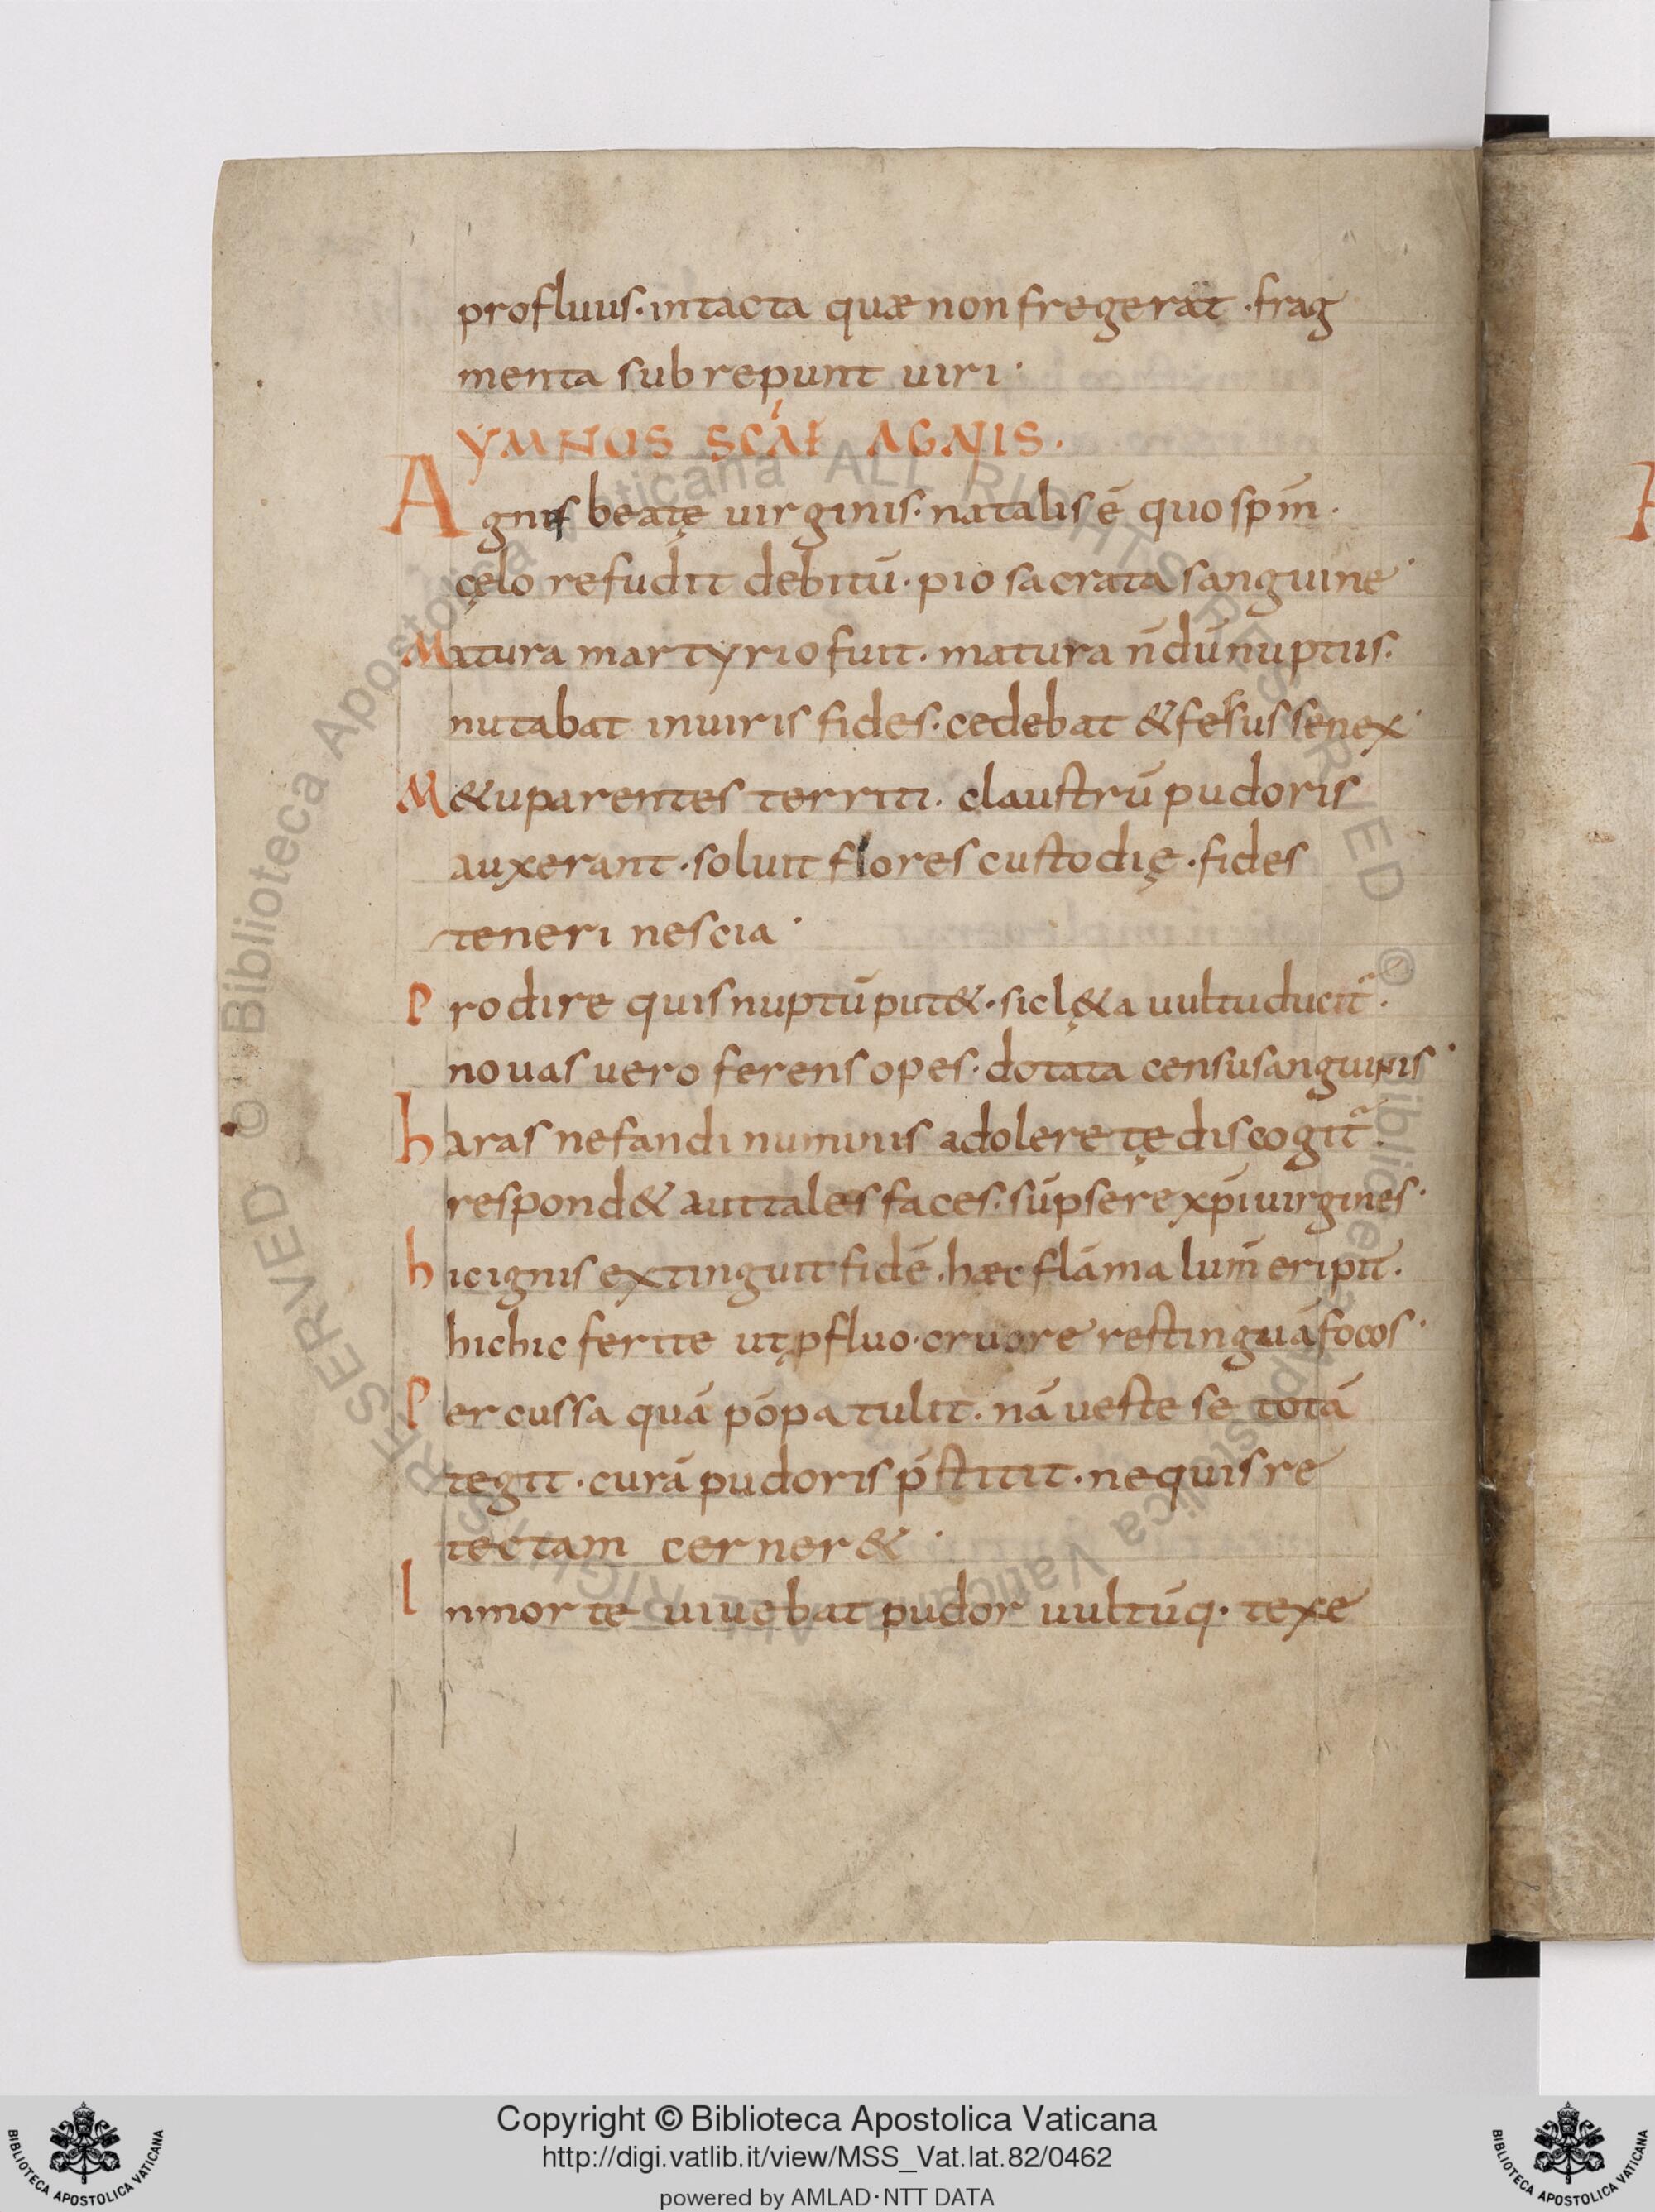 profluus· intacta quæ non fregerat · frag
menta subrepunt uiri ·
YMNUS SCAE AGNIS.
Agnis beatę uirginis· natalis ē quo spm̄ ·
cęlo refudit debitū· pio sacrata sanguine ·
Matura martyrio fuit· matura n̄dū nuptiis·
nutabat in uiris fides· cedebat & fessus senex ·
M&u parentes territi· claustrū pudoris
auxerant · soluit flores custodię · fides
teneri nescia ·
Prodire quis nuptū put&· sic lę&a uultu ducit̄ ·
nouas uero ferens opes· dotata censu sanguinis ·
haras nefandi numinis adolere tędis cogit̄ ·
respond& aut tales faces· sūpsere xp̄i uirgines ·
hic ignis extinguit fidē· hæc flāma lum̄ eripit ·
hic hic ferite ut pfluo· cruore restinguā focos ·
Percussa quā pōpa tulit· nā ueste se totā
tegit · curā pudoris p̄stitit · ne quis re
tectam cerner& ·
In morte uiuebat pudor uultūq· texe
© Biblioteca Apostolica Vaticana ALL RIGHTS RESERVED © Biblioteca Apostolica Vaticana ALL RIGHTS RESERVED
Copyright © Biblioteca Apostolica Vaticana
http://digi.vatlib.it/view/MSS_Vat.lat.82/0462
powered by AMLAD·NTT DATA
BIBLIOTECA APOSTOLICA VATICANA
BIBLIOTECA APOSTOLICA VATICANA